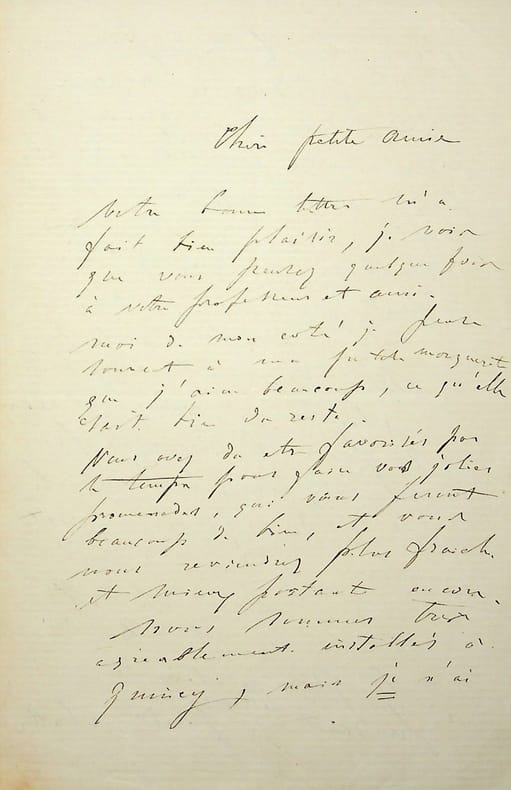 Chère petite amie
Votre bonne lettre m'a
fait bien plaisir, je vois
que vous pensez quelque fois
à votre professeur et ami.
moi de mon coté je pense
souvent à ma petite marguerite
que j'aime beaucoup, ce qu'elle
sait bien du reste.
Vous avez du etre favorisés par
le temps pour faire vos jolies
promenades, qui vous feront
beaucoup de bien, et vous
nous reviendrez plus fraiche
et mieux portant encore.
Nous sommes très
agreablement installés à
Quincy, mais je n'ai